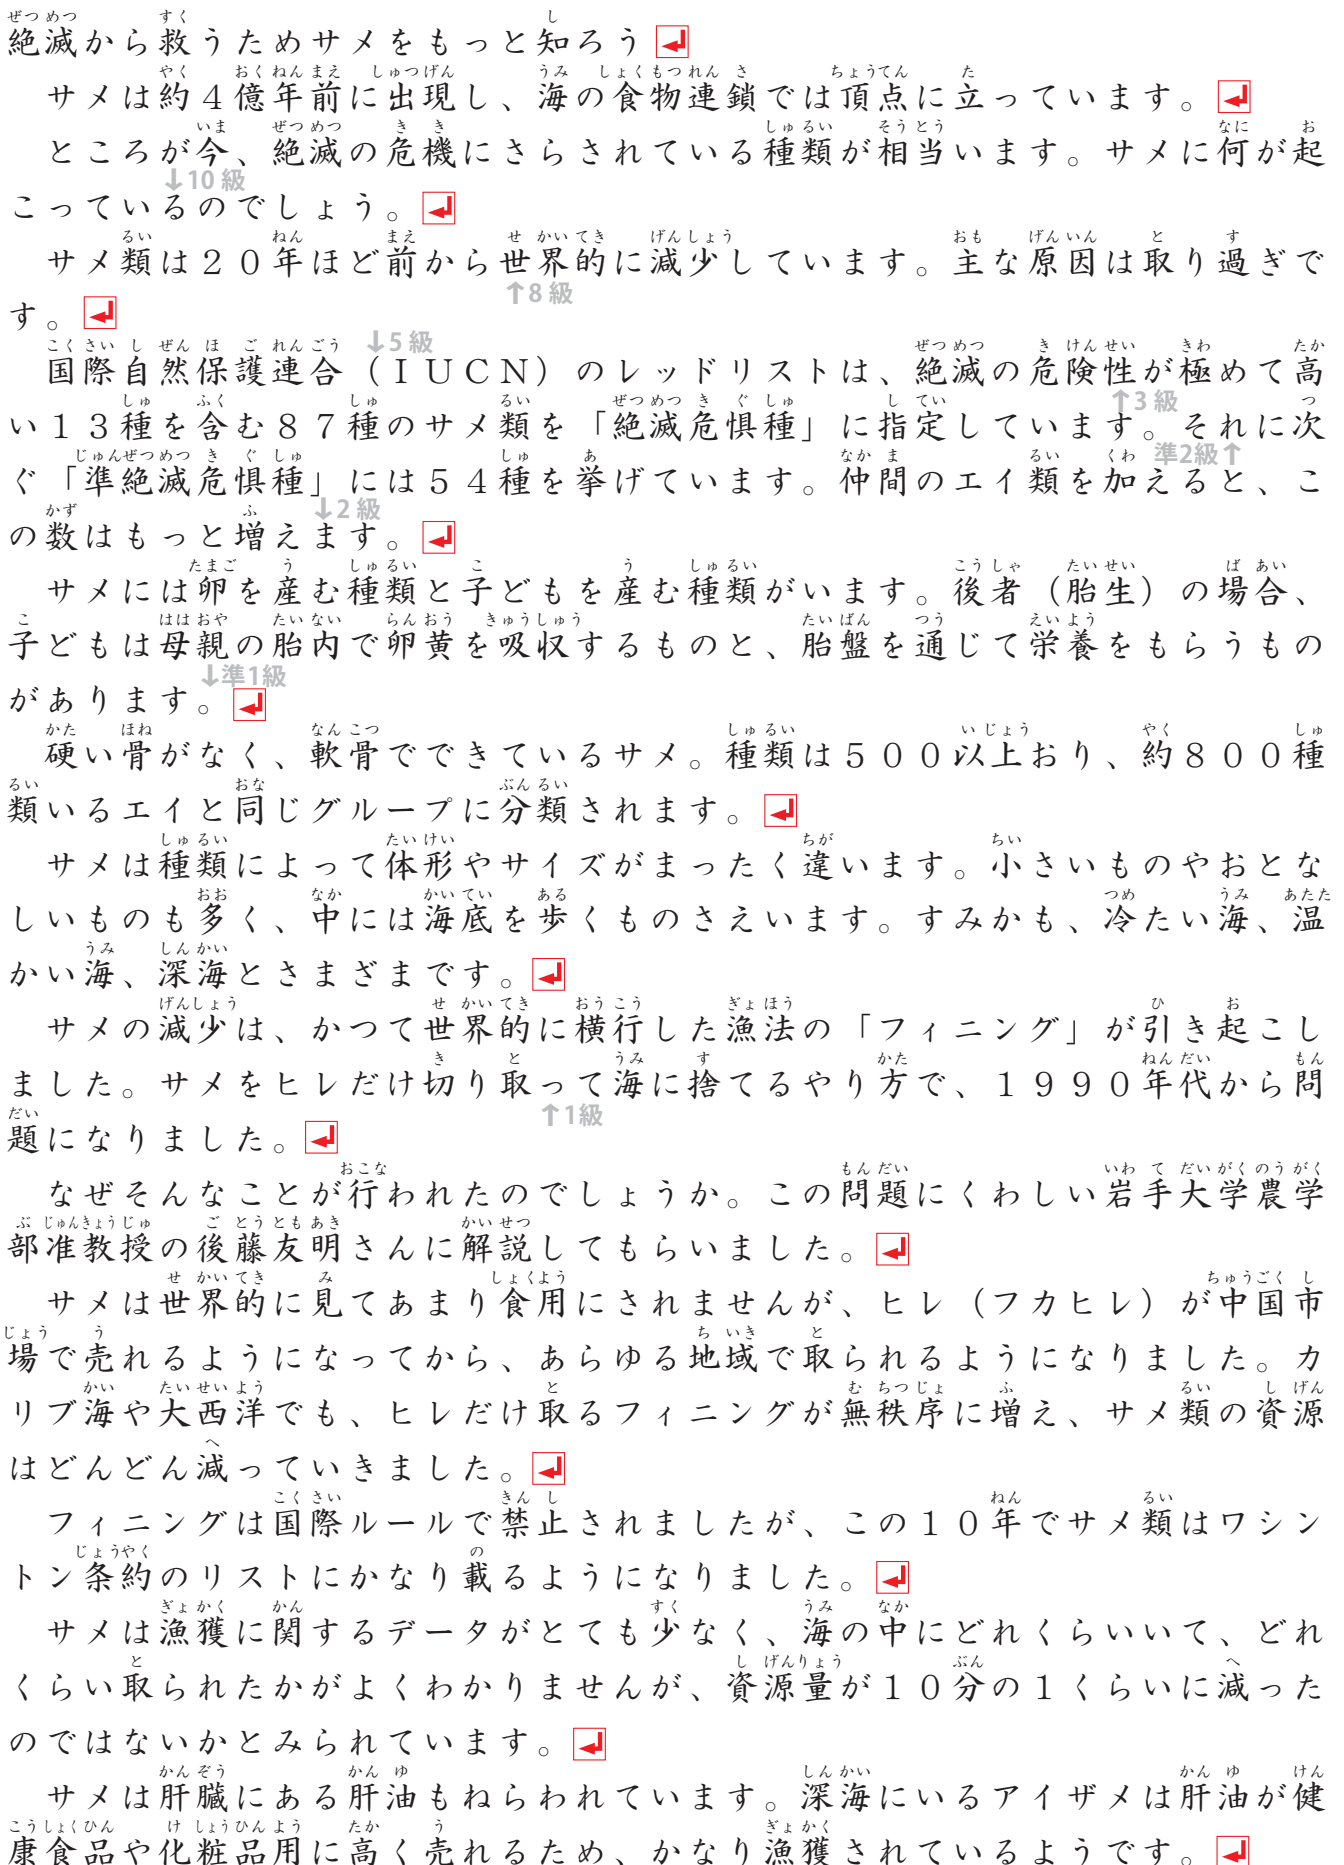 絶滅から救うためサメをもっと知ろう
サメは約4億年前に出現し、海の食物連鎖では頂点に立っています。
ところが今、絶滅の危機にさらされている種類が相当います。サメに何が起
↓10級
こっているのでしょう。
サメ類は20年ほど前から世界的に減少しています。主な原因は取り過ぎで
↑8級
す。
↓5級
国際自然保護連合(IUCN)のレッドリストは、絶滅の危険性が極めて高
↑3級
い13種を含む87種のサメ類を「絶滅危惧種」に指定しています。それに次
準2級↑
ぐ「準絶滅危惧種」には54種を挙げています。仲間のエイ類を加えると、こ
↓2級
の数はもっと増えます。
サメには卵を産む種類と子どもを産む種類がいます。後者(胎生)の場合、
子どもは母親の胎内で卵黄を吸収するものと、胎盤を通じて栄養をもらうもの
↓準1級
があります。
硬い骨がなく、軟骨でできているサメ。種類は500以上おり、約800種
類いるエイと同じグループに分類されます。
サメは種類によって体形やサイズがまったく違います。小さいものやおとな
しいものも多く、中には海底を歩くものさえいます。すみかも、冷たい海、温
かい海、深海とさまざまです。
サメの減少は、かつて世界的に横行した漁法の「フィニング」が引き起こし
ました。サメをヒレだけ切り取って海に捨てるやり方で、1990年代から問
↑1級
題になりました。
なぜそんなことが行われたのでしょうか。この問題にくわしい岩手大学農学
部准教授の後藤友明さんに解説してもらいました。
サメは世界的に見てあまり食用にされませんが、ヒレ(フカヒレ)が中国市
場で売れるようになってから、あらゆる地域で取られるようになりました。カ
リブ海や大西洋でも、ヒレだけ取るフィニングが無秩序に増え、サメ類の資源
はどんどん減っていきました。
フィニングは国際ルールで禁止されましたが、この10年でサメ類はワシン
トン条約のリストにかなり載るようになりました。
サメは漁獲に関するデータがとても少なく、海の中にどれくらいいて、どれ
くらい取られたかがよくわかりませんが、資源量が10分の1くらいに減った
のではないかとみられています。
サメは肝臓にある肝油もねらわれています。深海にいるアイザメは肝油が健
康食品や化粧品用に高く売れるため、かなり漁獲されているようです。